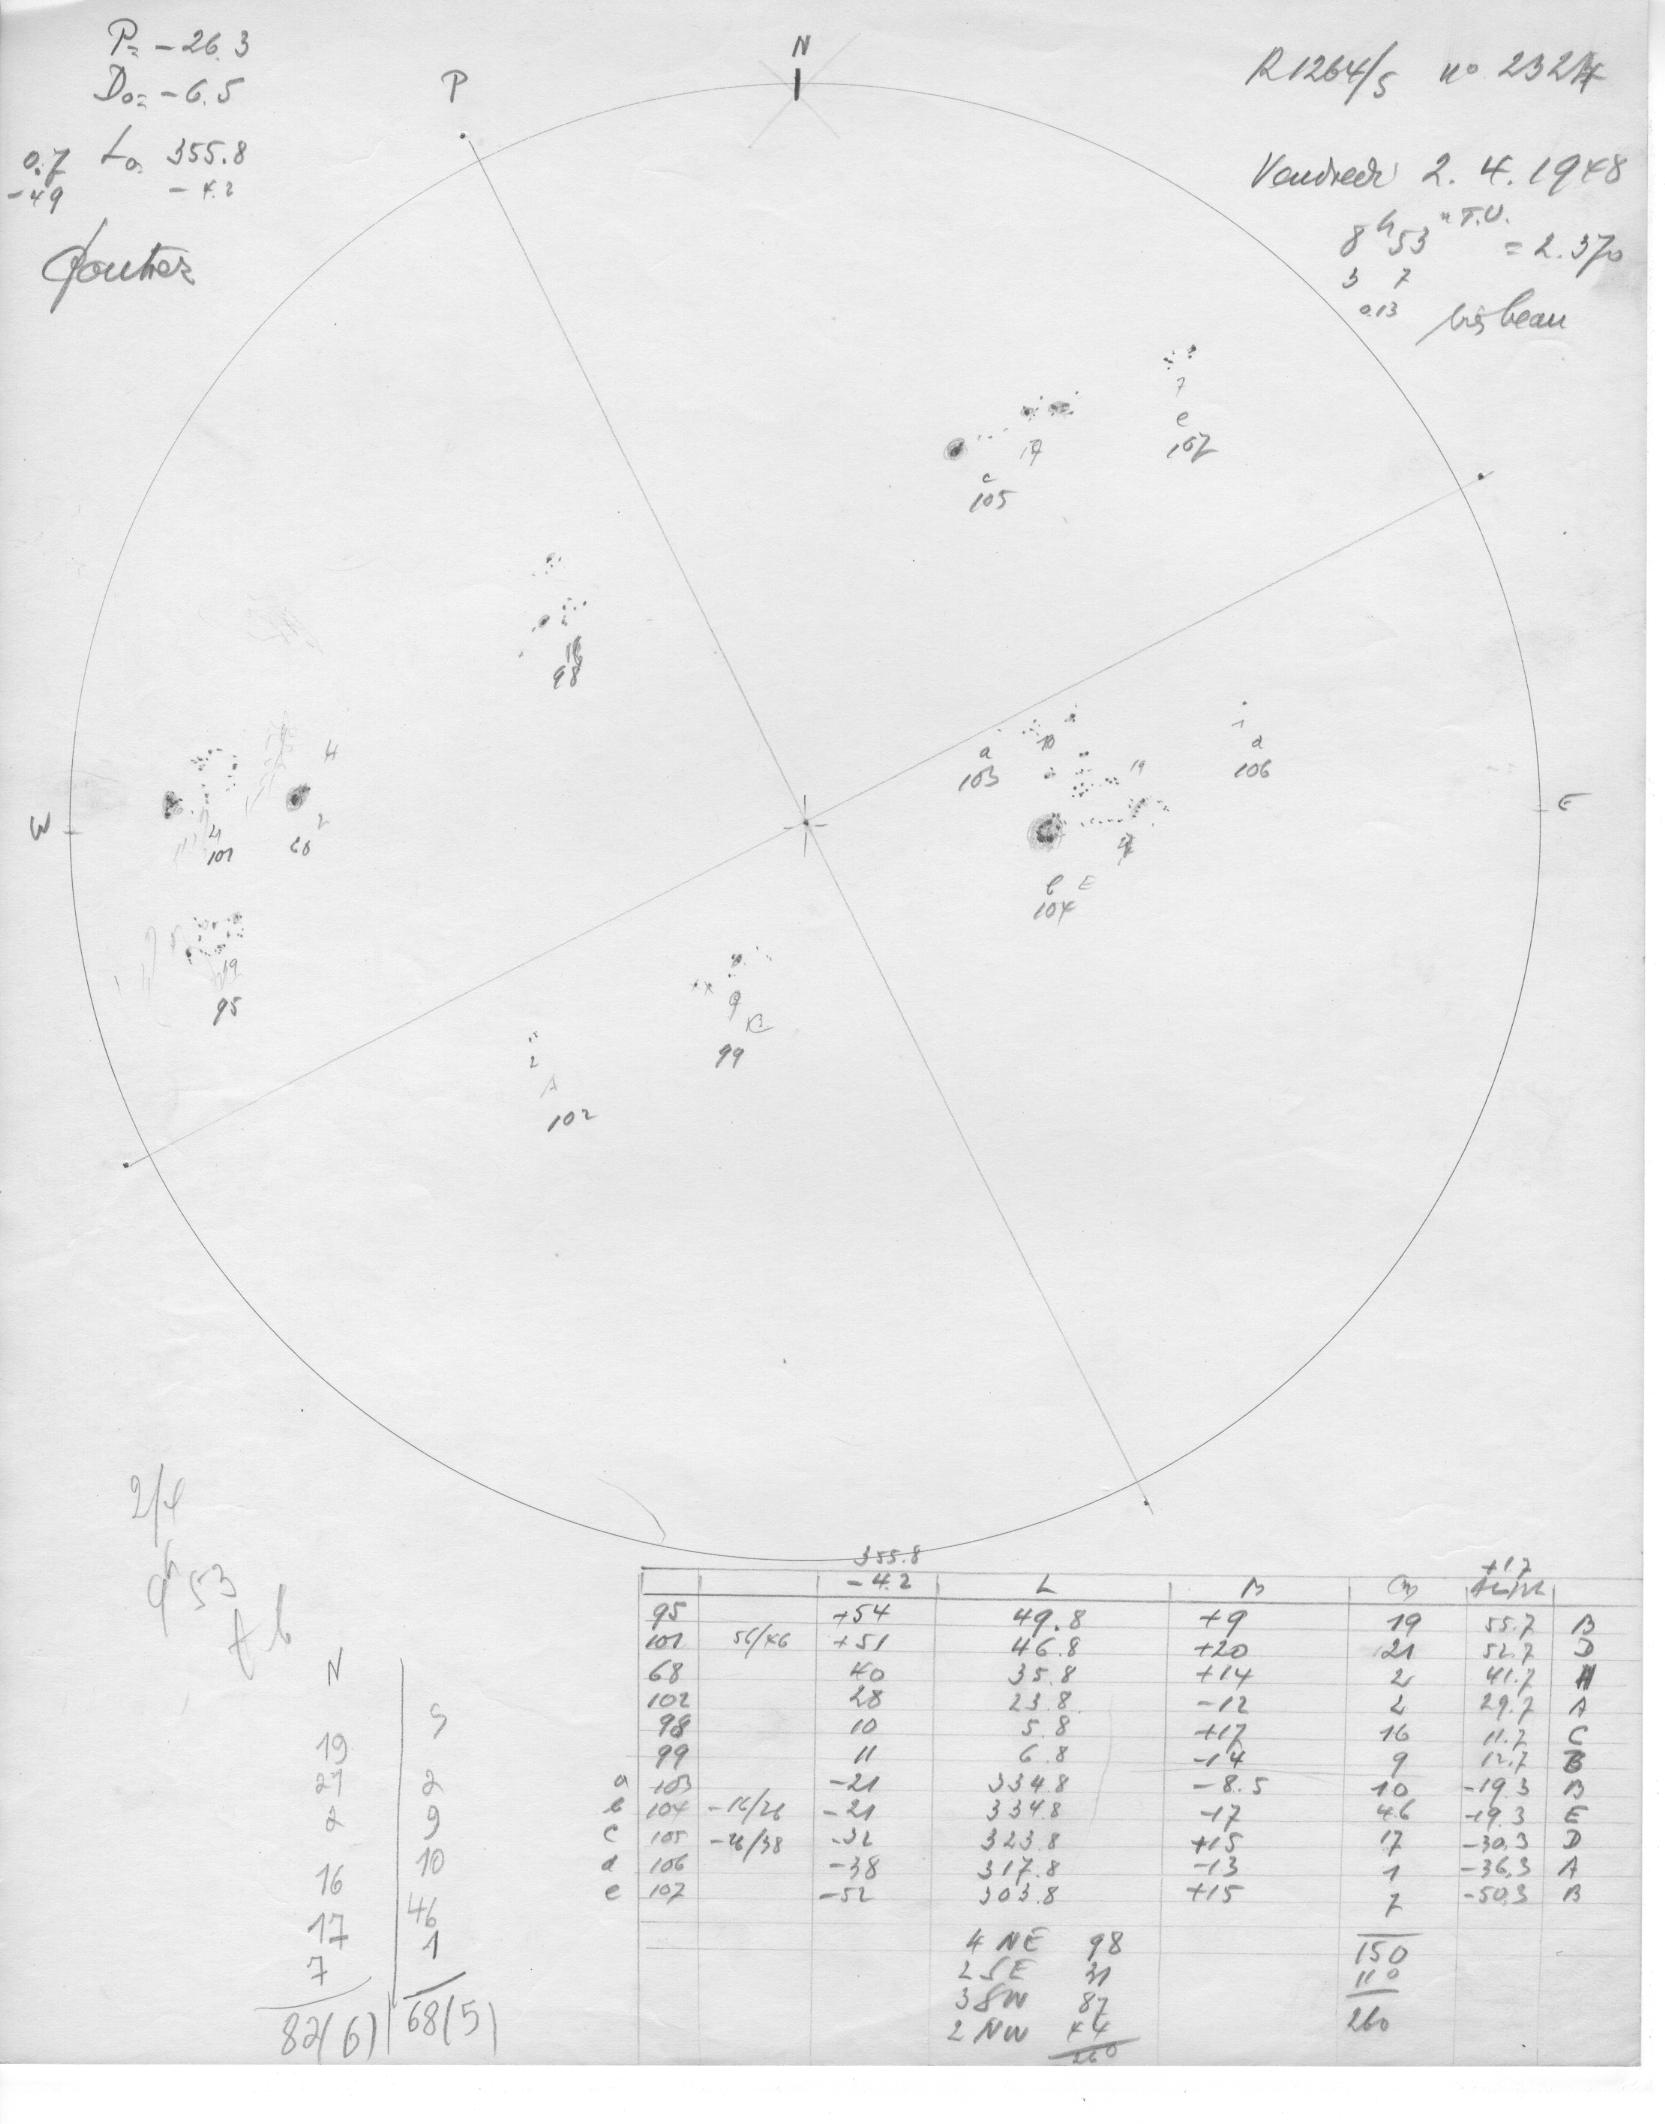 P= -26.3
D₀= -6.5
0.7 L₀ 355.8
-49 -4.2
P
N
R1264/5 nº 232
Vendredi 2. 4. 1948
8h53 T.U. = 2.370
3 7
0.13 très beau
7
e
107
17
c
105
16
98
H
2
68
21
101
W
10
a
103
1
d
106
19
E
b E
104
19
95
9
B
99
2
A
102
2/4
9h53
tb
355.8 +1.7
-4.2 L B
95 +54 49.8 +9 19 55.7 B
101 56/46 +51 46.8 +20 21 52.7 D
68 40 35.8 +14 2 41.7 H
102 28 23.8 -12 2 29.7 A
98 10 5.8 +17 16 11.7 C
99 11 6.8 -14 9 12.7 B
a 103 -21 334.8 -8.5 10 -19.3 B
b 104 -16/26 -21 334.8 -17 46 -19.3 E
c 105 -26/38 -32 323.8 +15 17 -30.3 D
d 106 -38 317.8 -13 1 -36.3 A
e 107 -52 303.8 +15 7 -50.3 B
4 NE 98 150
2 SE 31 110
3 SW 87 260
2 NW 44
260
N S
19
21 2
2 9
16 10
17 46
7 1
82(6) 68(5)